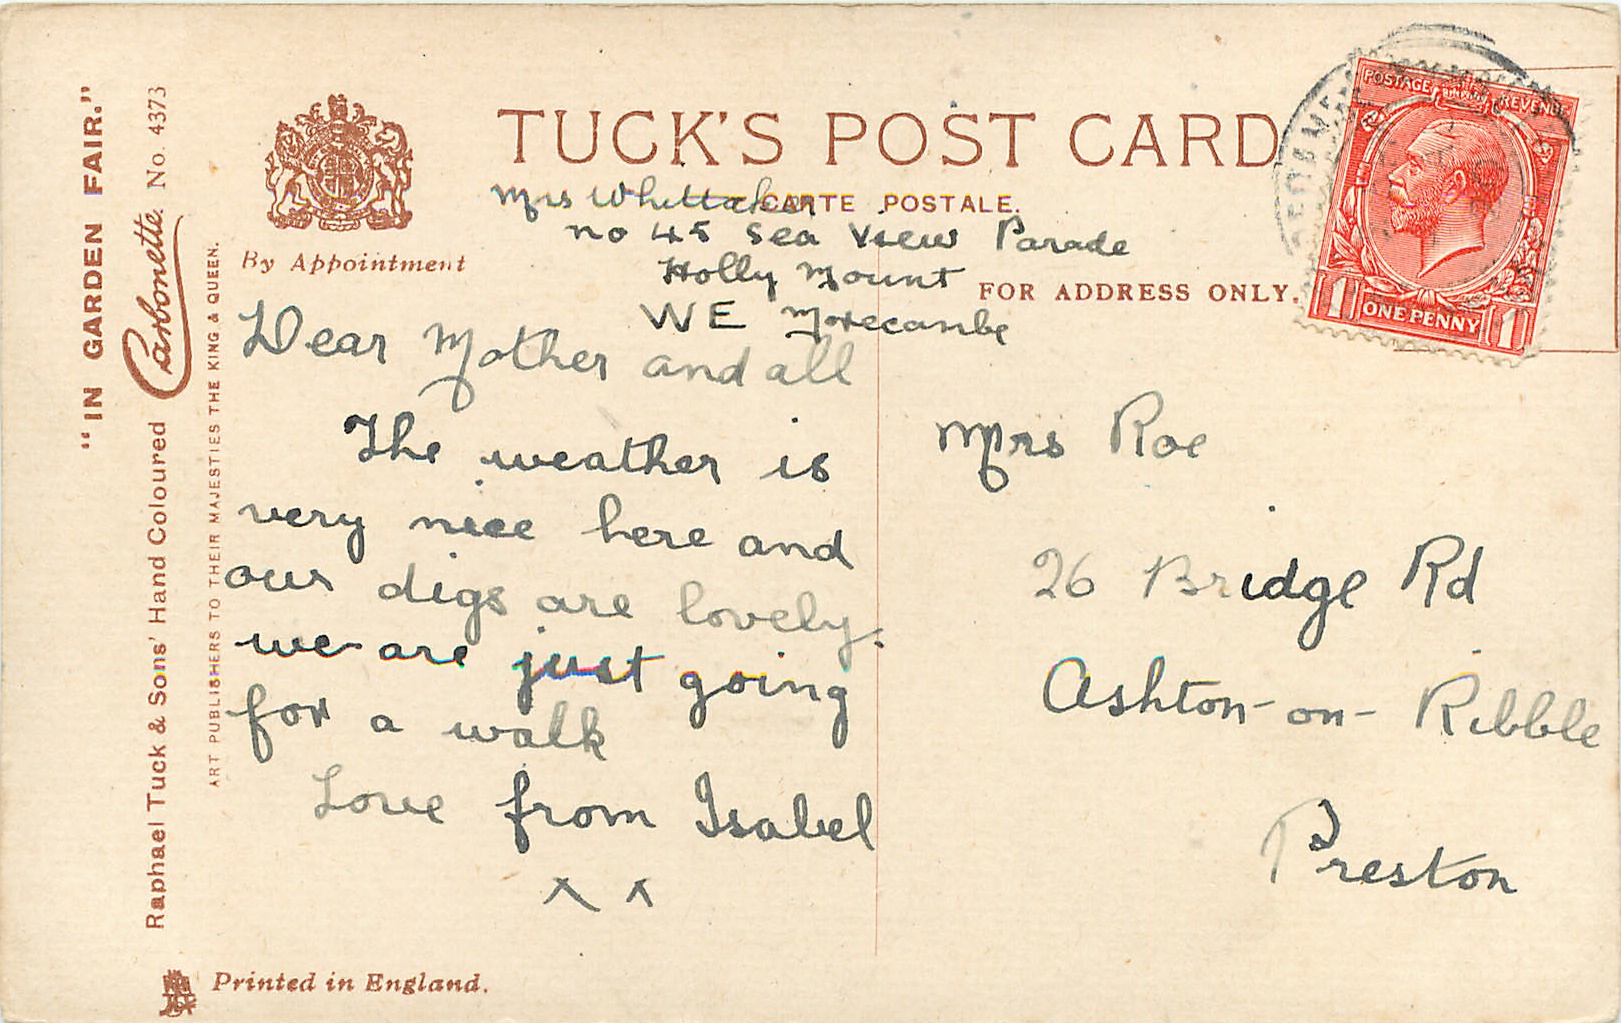 "IN GARDEN FAIR."
Carbonette. No. 4373
Raphael Tuck & Sons' Hand Coloured
ART PUBLISHERS TO THEIR MAJESTIES THE KING & QUEEN.
By Appointment
TUCK'S POST CARD
CARTE POSTALE.
FOR ADDRESS ONLY.
POSTAGE REVENUE
1 ONE PENNY 1
Mrs Whittaker
no 45 Sea View Parade
Holly Mount
WE Morecambe
Dear Mother and all
The weather is
very nice here and
our digs are lovely.
we are just going
for a walk
Love from Isabel
x x
Mrs Roe
26 Bridge Rd
Ashton-on-Ribble
Preston
Printed in England.